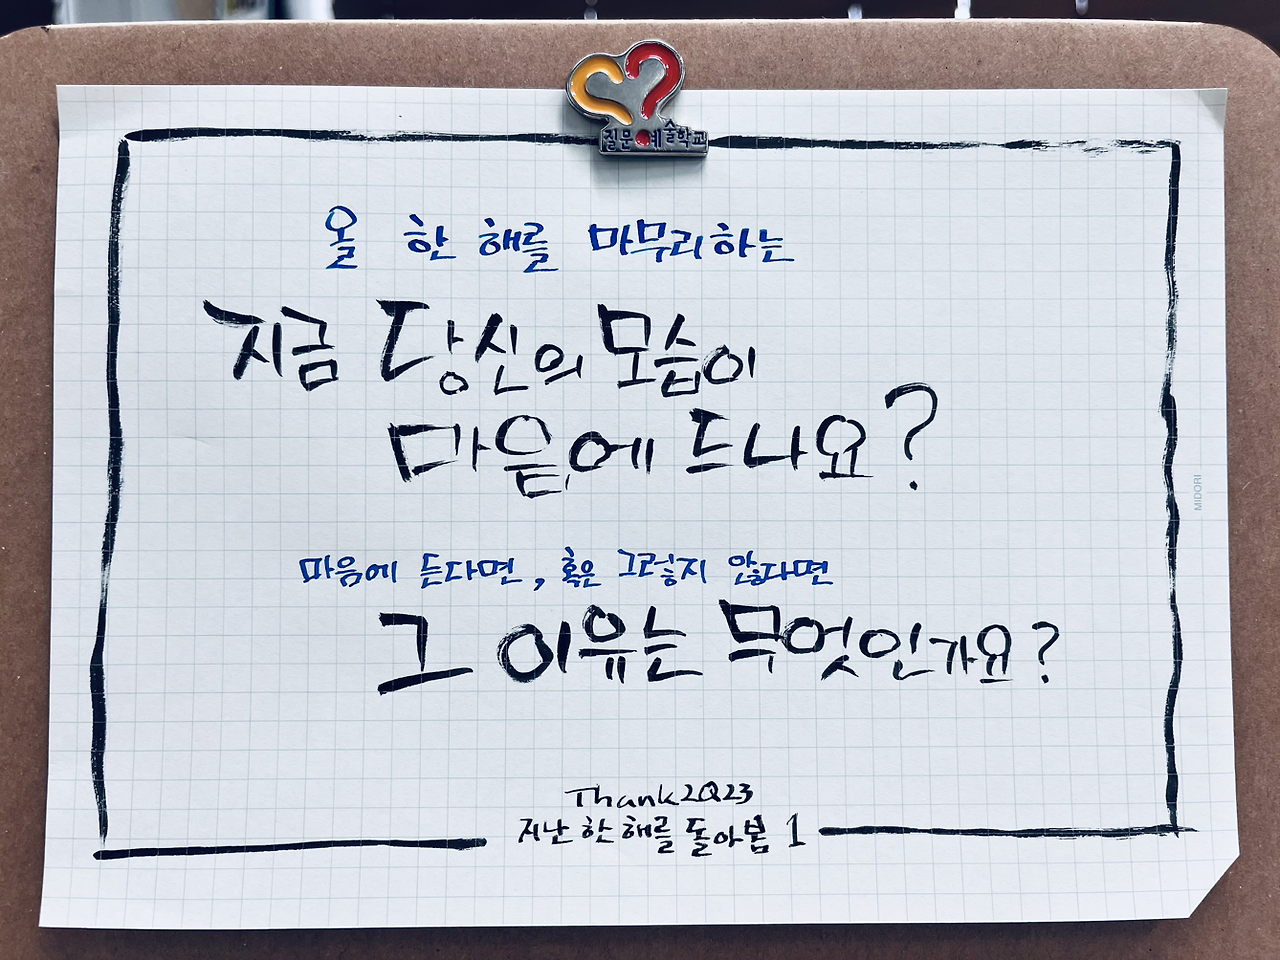 질문예술학교
올 한 해를 마무리하는
지금 당신의 모습이
마음에 드나요?
MIDORI
마음에 든다면, 혹은 그렇지 않다면
그 이유는 무엇인가요?
Thank2023
지난 한 해를 돌아봄 1